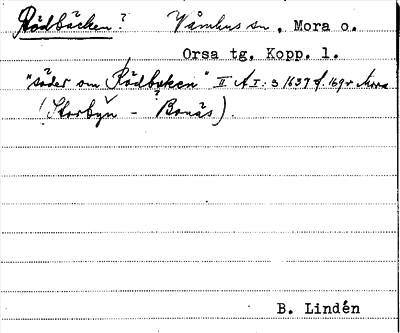 Rödbäcken? Våmhus sn, Mora o.
Orsa tg, Kopp. l.
"söder om Rödbäcken" II A I:3 1637 f. 169v Mora
(Storbyn - Bonäs).
B. Lindén